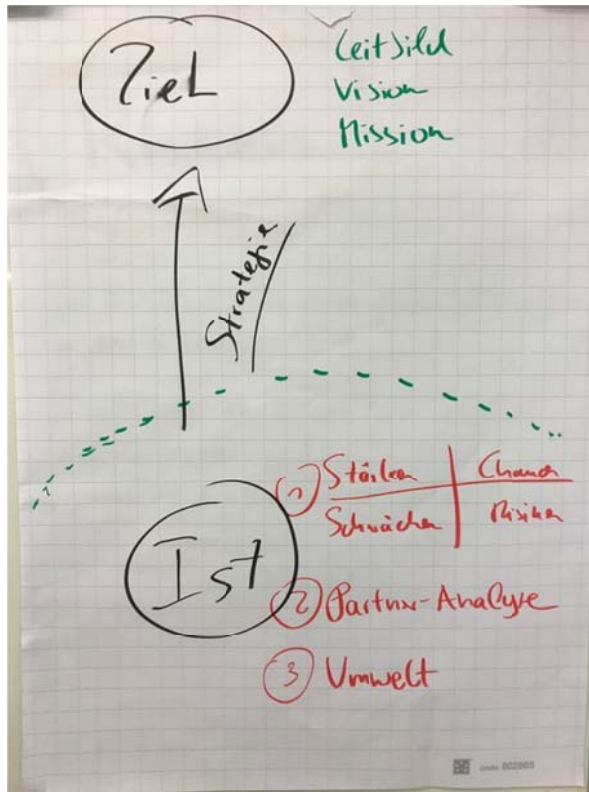 Ziel
Leitbild
Vision
Mission
Strategie
Ist
1 Stärken Chancen
Schwächen Risiken
2 Partner-Analyse
3 Umwelt
code 802865